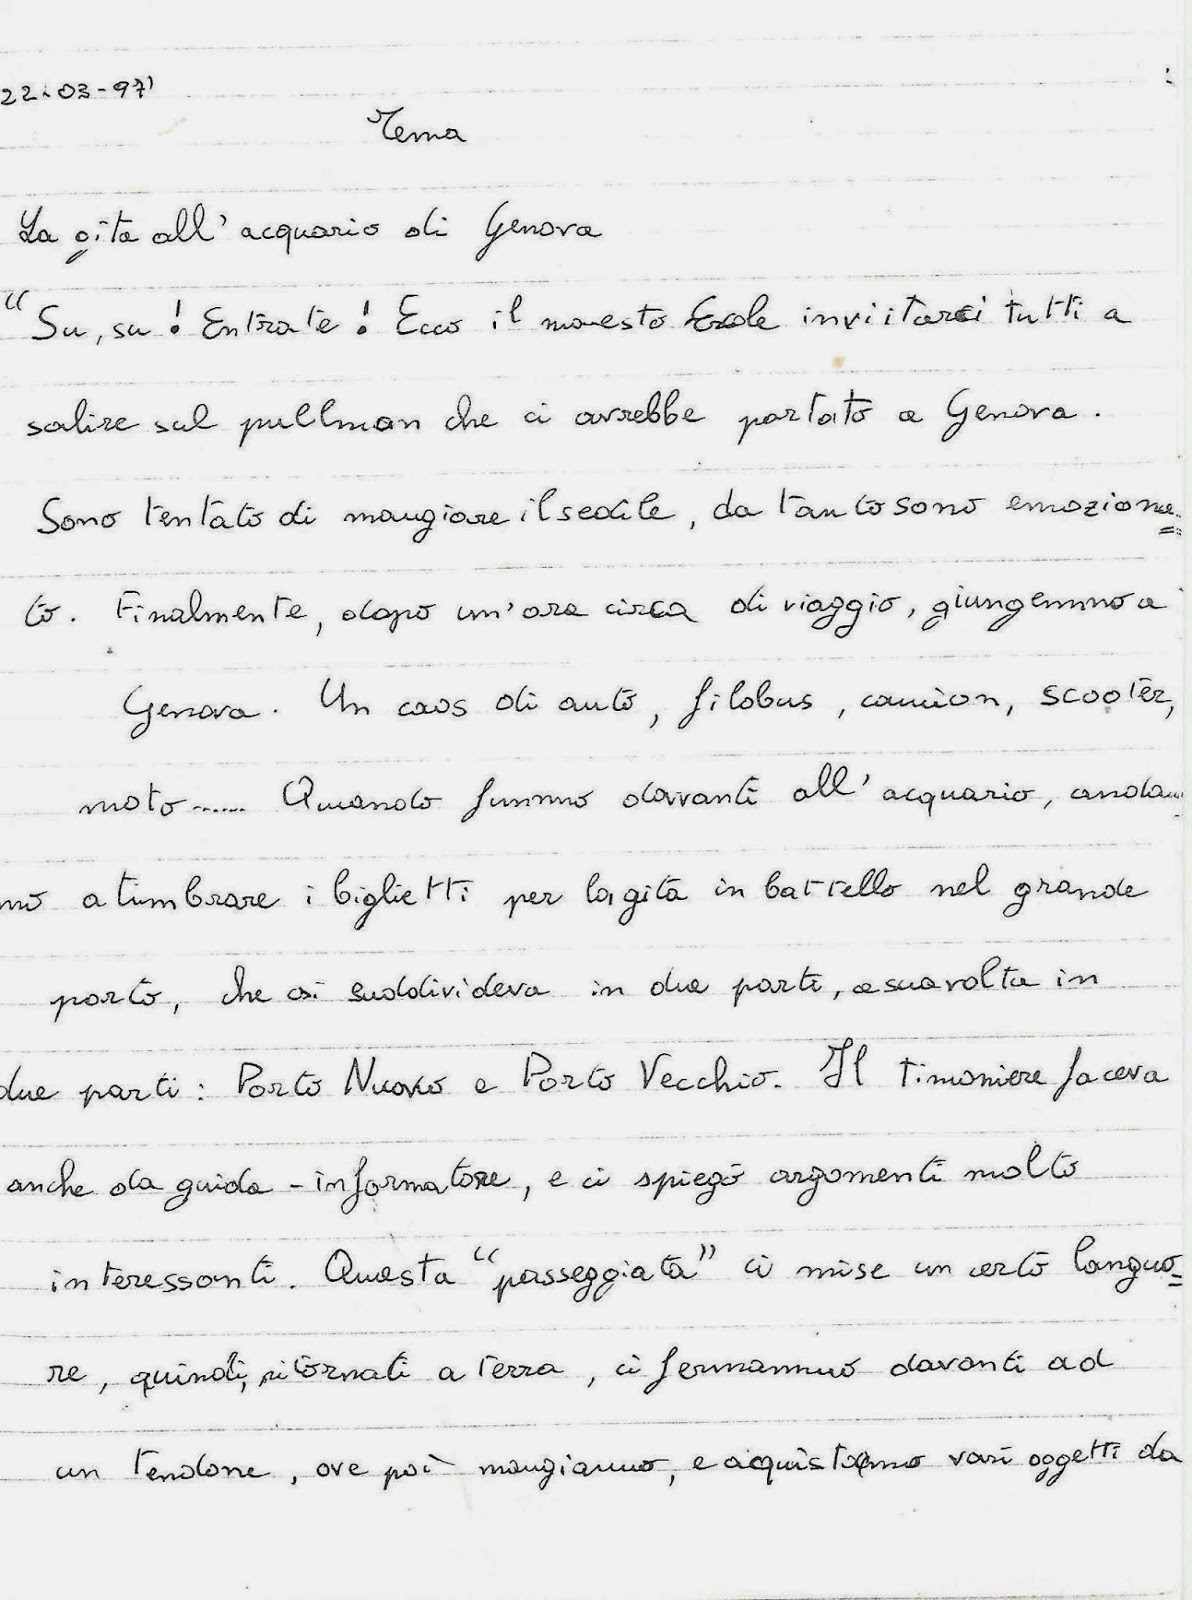 22-03-97'
Tema
La gita all'acquario di Genova
“Su, su! Entrate! Ecco il maestro Ercole inviitarci tutti a
salire sul pullman che ci avrebbe portato a Genova.
Sono tentato di mangiare il sedile, da tanto sono emoziona=
to. Finalmente, dopo un'ora circa di viaggio, giungemmo a
Genova. Un caos di auto, filobus, camion, scooter,
moto...... Quando fummo davanti all'acquario, andam
mo a timbrare i biglietti per la gita in battello nel grande
porto, che si suddivideva in due parti, a sua volta in
due parti: Porto Nuovo e Porto Vecchio. Il timoniere faceva
anche da guida-informatore, e ci spiegò argomenti molto
interessanti. Questa “passeggiata” ci mise un certo languo=
re, quindi, ritornati a terra, ci fermammo davanti ad
un tendone, ove poi mangiammo, e acquistammo vari oggetti da